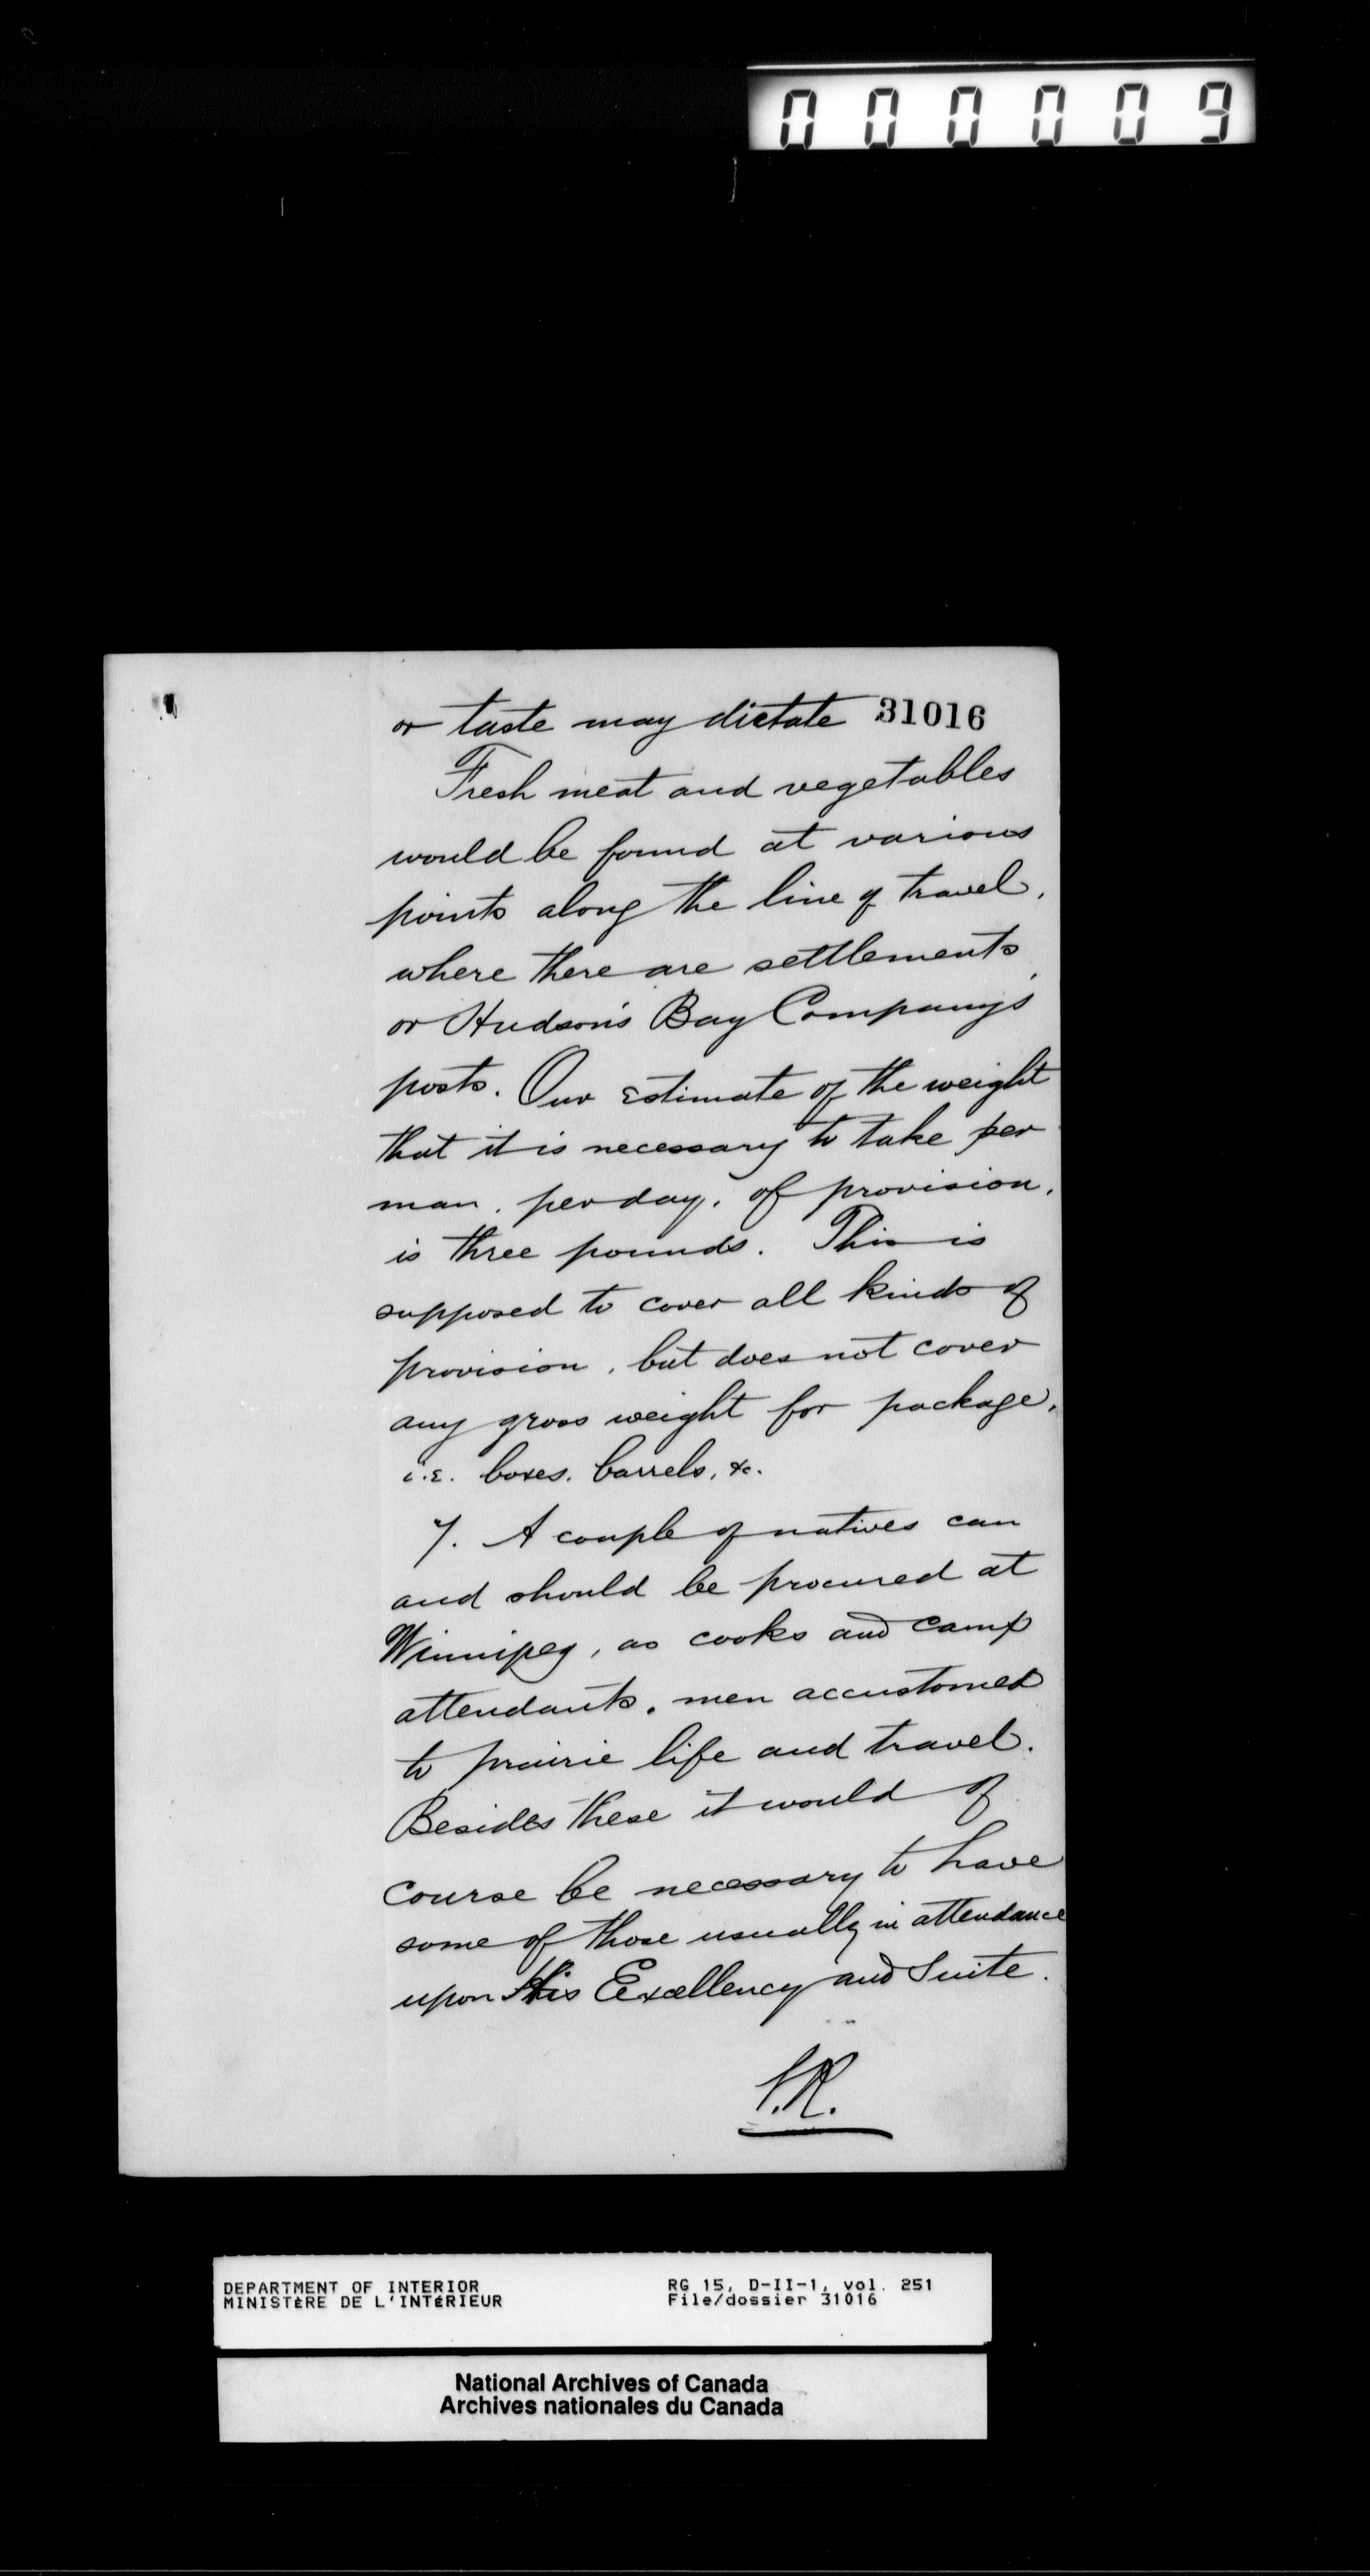 000009
or taste may dictate 31016
Fresh meat and vegetables
would be found at various
points along the line of travel,
where there are settlements
or Hudson's Bay Company's
posts. Our estimate of the weight
that it is necessary to take per
man, per day, of provision,
is three pounds. This is
supposed to cover all kinds of
provision, but does not cover
any gross weight for package,
i.e. boxes, barrels, &c.
7. A couple of natives can
and should be procured at
Winnipeg, as cooks and camp
attendants, men accustomed
to prairie life and travel.
Besides these it would of
course be necessary to have
some of those usually in attendance
upon His Excellency and Suite.
DEPARTMENT OF INTERIOR RG 15, D-II-1, vol. 251
MINISTÈRE DE L'INTÉRIEUR File/dossier 31016
National Archives of Canada
Archives nationales du Canada